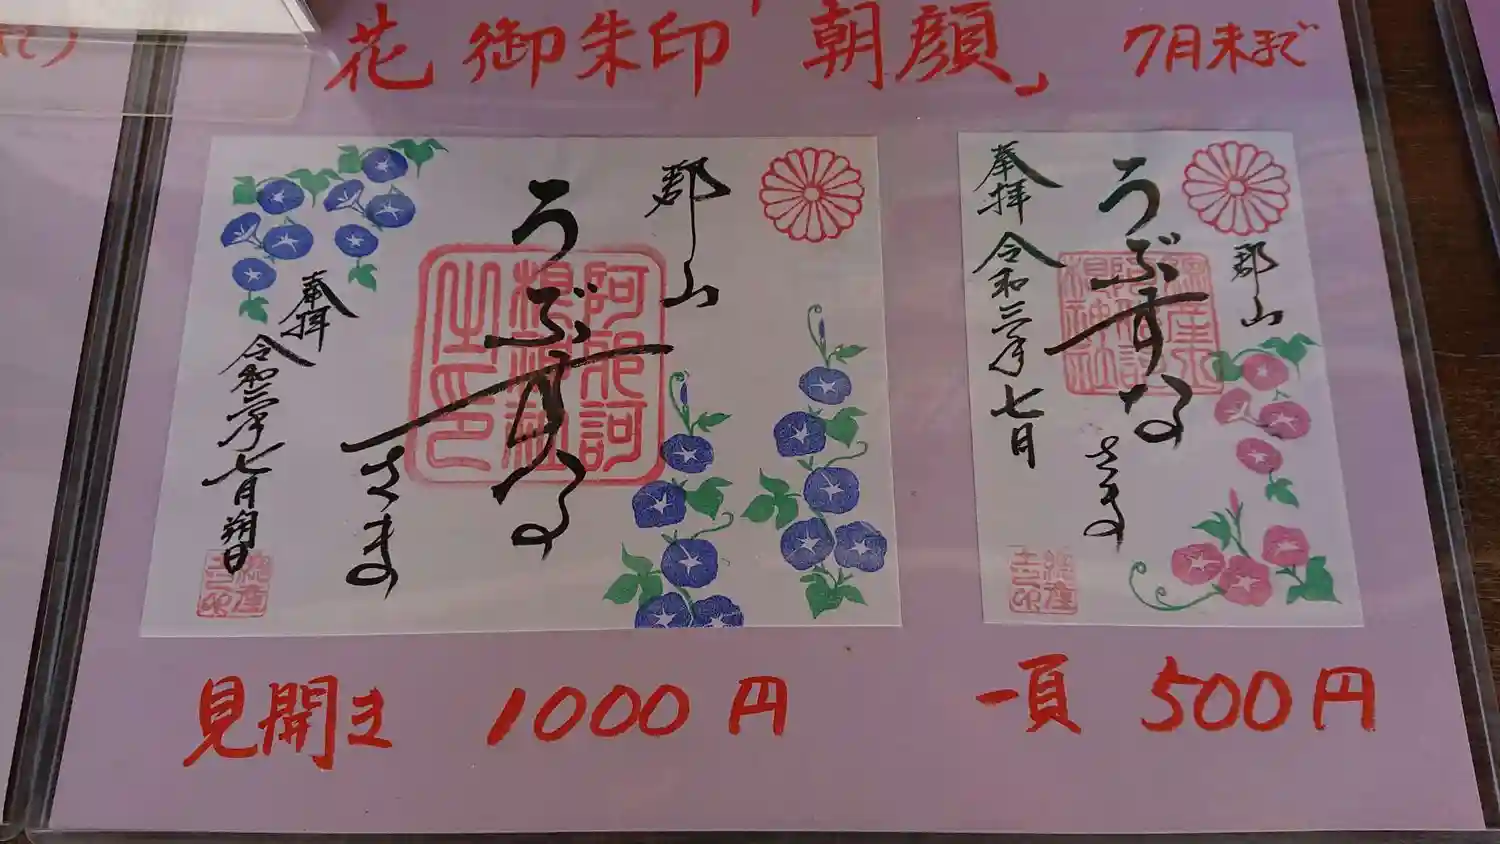 花御朱印「朝顔」 7月末まで
郡山
うぶすな
さま
奉拝
令和三年七月朔日
阿邪訶
根神社
之印
郡山
うぶすな
さま
奉拝 令和三年七月
見開き 1000円
一頁 500円